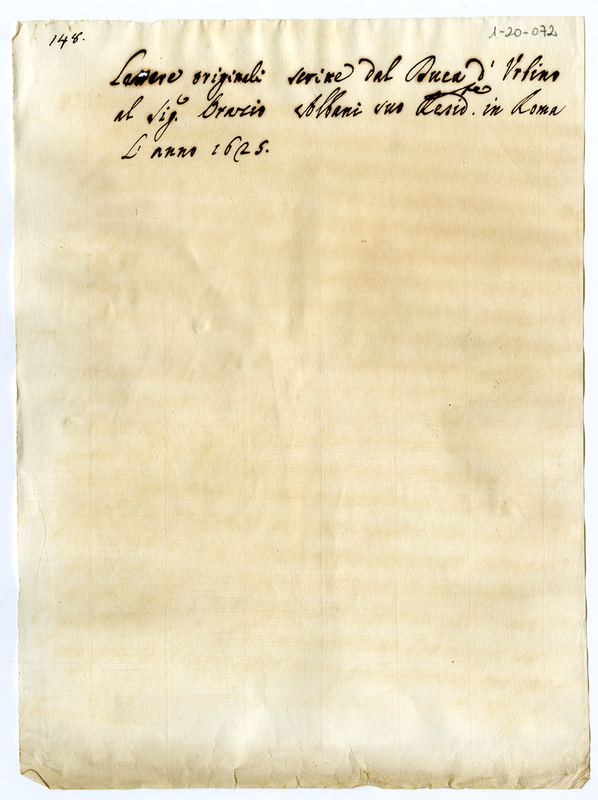 148.
1-20-072
Lettere originali scritte dal Duca d' Urbino
al Sig.r Orazio Albani suo Resid.te in Roma
L' anno 1625.